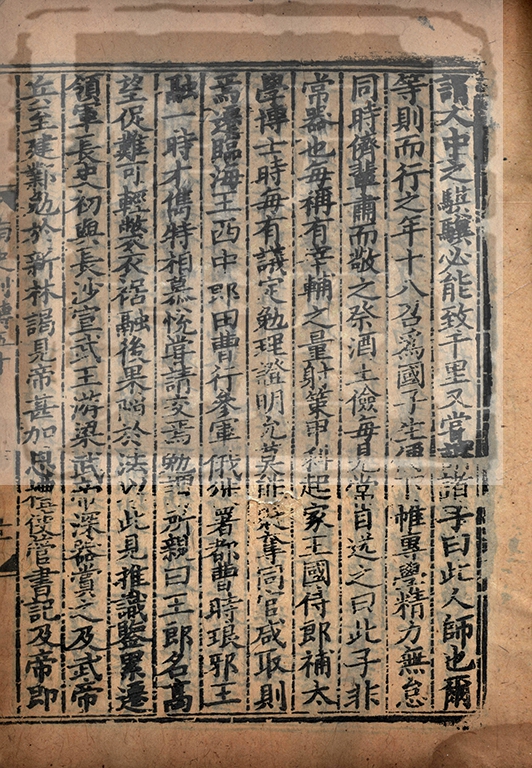 謂人中之騏驥必能致千里又嘗謂諸子曰此人師也爾
等則而行之年十八召爲國子生便下帷專學精力無怠
同時儕輩肅而敬之祭酒王儉每見常目送之曰此子非
常器也每稱有宰輔之量射策甲科起家王國侍郎補太
學博士時每有議定勉理證明允莫能貶奪同官咸取則
焉遷臨海王西中郎田曹行參軍俄徙署都曹時琅邪王
融一時才儁特相慕悅嘗請交焉勉謂所親曰王郎名高
望促難可輕弊衣裾融後果陷於法以此見推識鑒累遷
領軍長史初與長沙宣武王游梁武帝深器賞之及武帝
兵至建鄴勉於新林謁見帝甚加恩禮使管書記及帝即
南史列傳五十